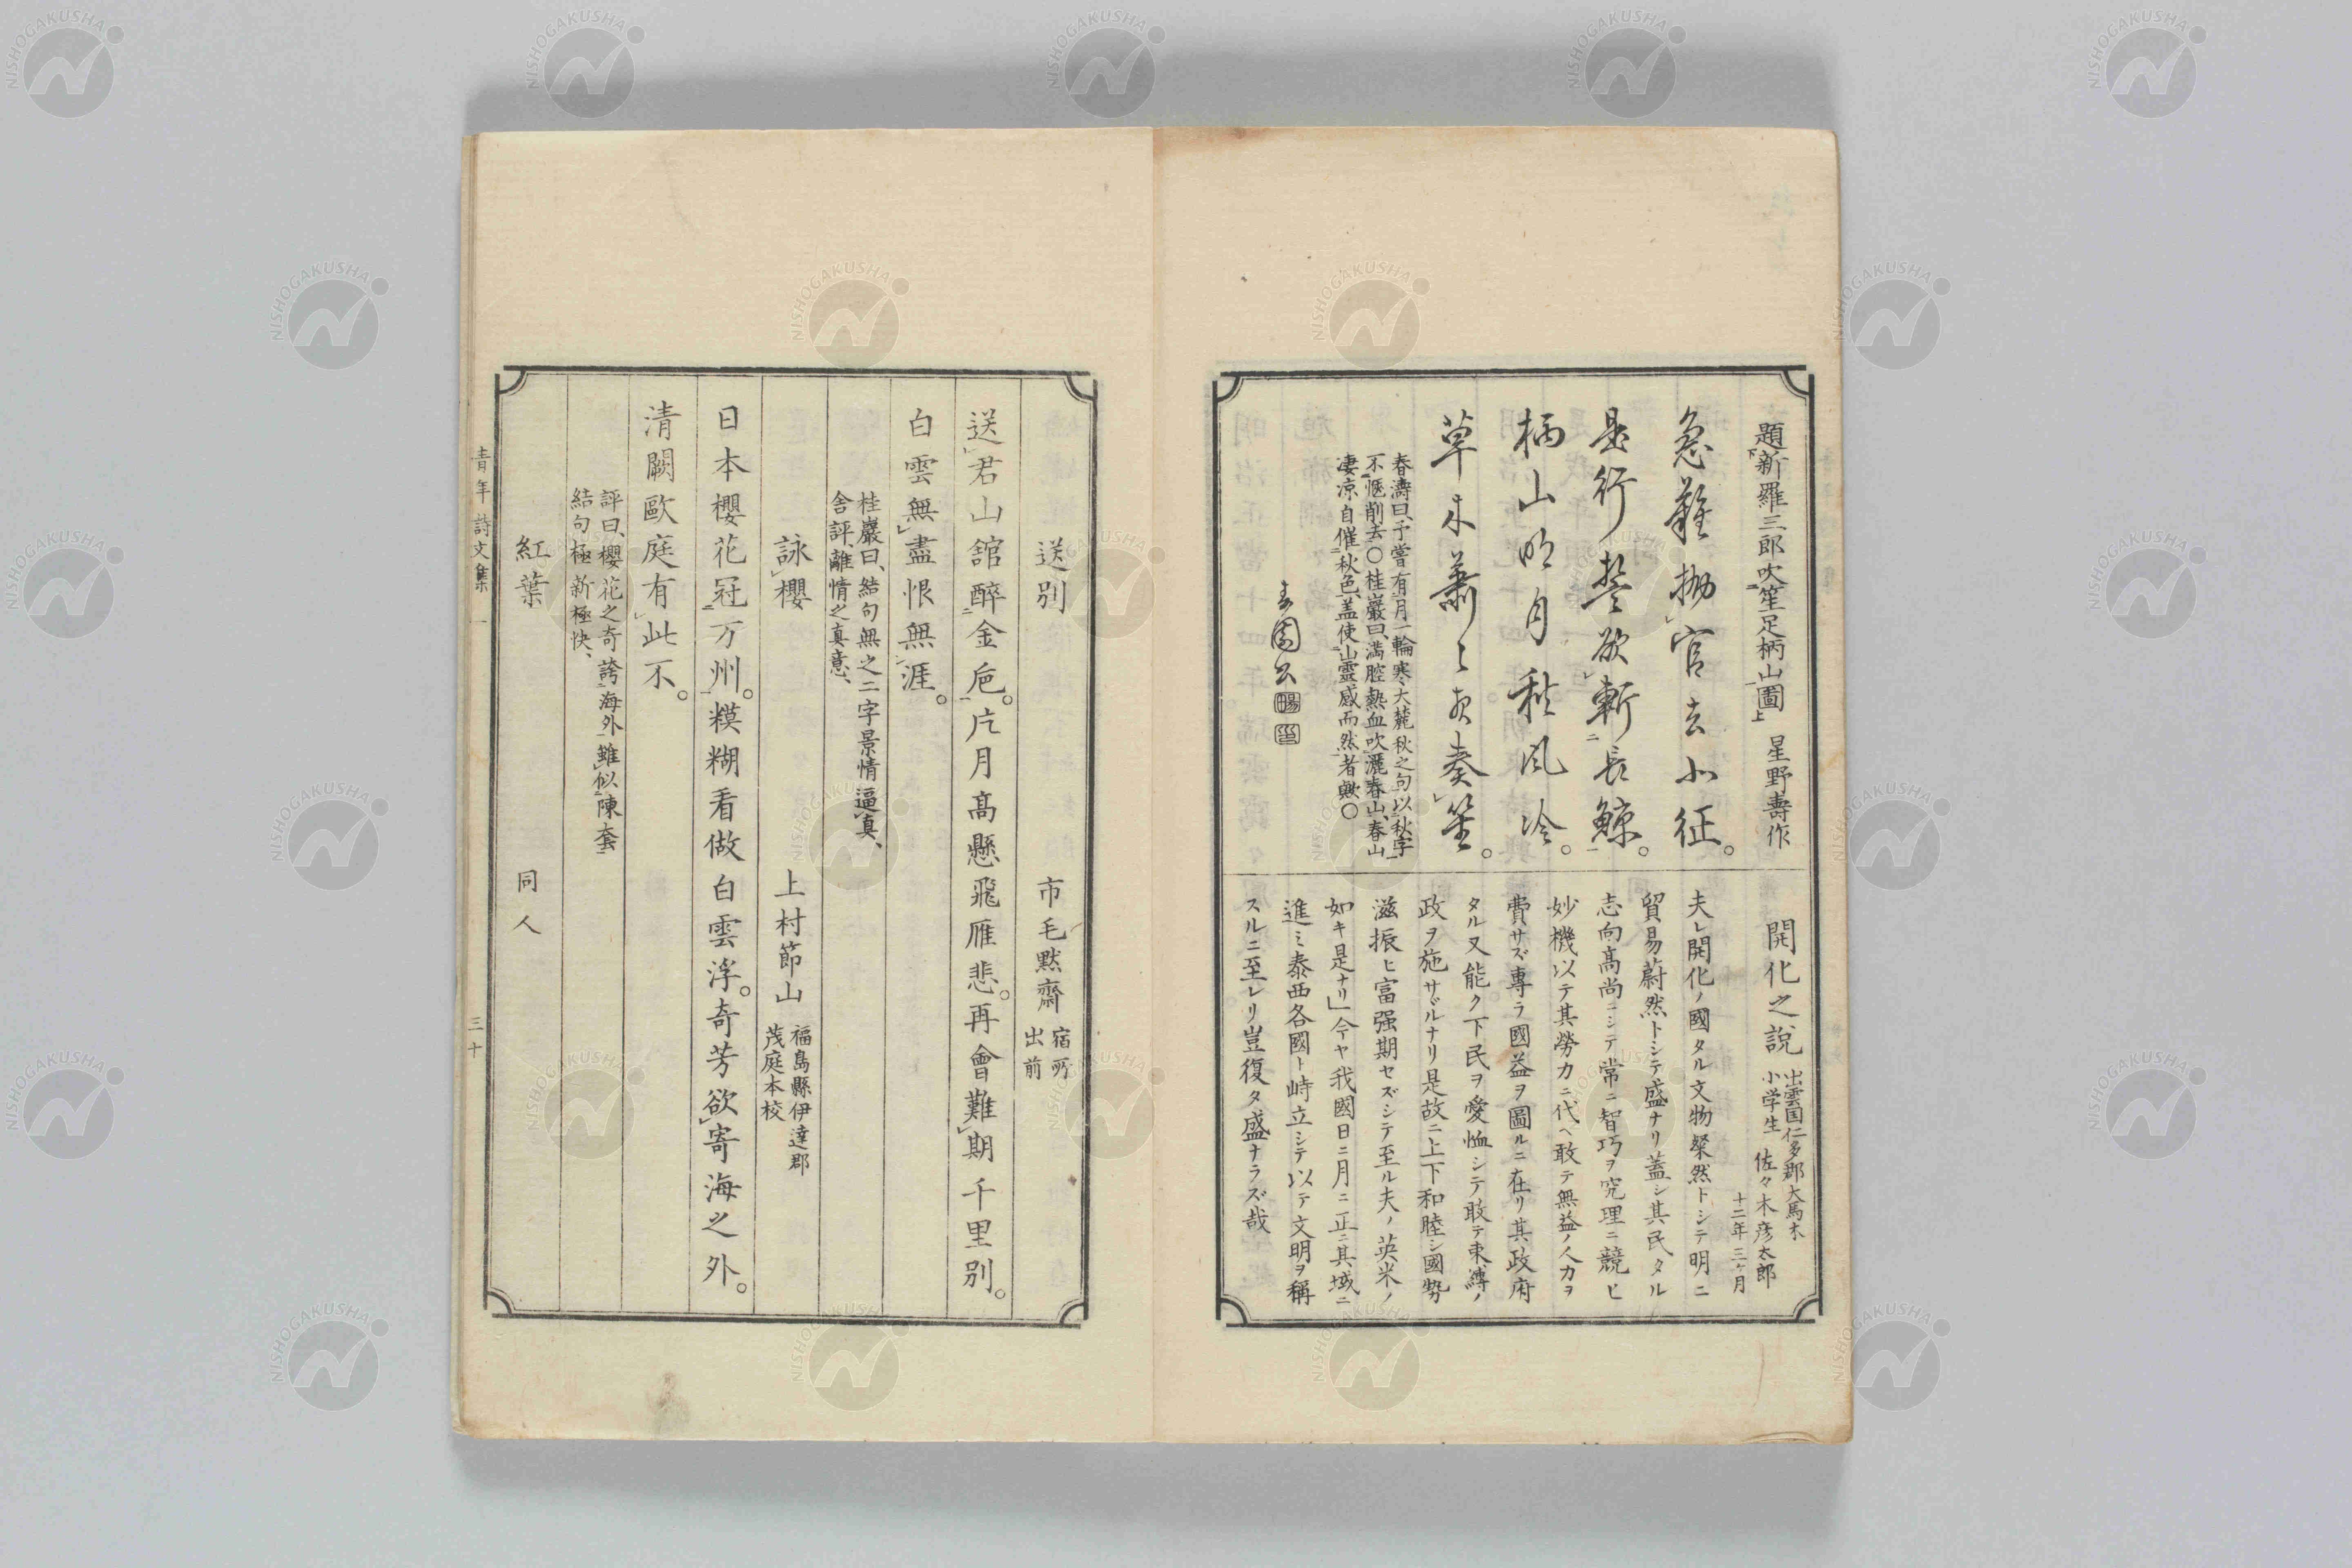 題新羅三郎吹笙足柄山圖 星野壽作
急難抛官去小征。
是行誓欲斬長鯨。
柄山明月秋風冷。
草木蕭〻夜奏笙。
春濤曰、予嘗有月一輪寒、大麓秋之句、以秋字
不愜削去〇桂巖曰、満腔熱血吹灑春山、春山
凄凉自催秋色、盖使山霊感而然者歟〇
開化之説 出雲国仁多郡大馬木
小学生 佐々木彦太郎
十二年三ヶ月
夫レ開化ノ國タル文物粲然トシテ明ニ
貿易蔚然トシテ盛ナリ蓋シ其民タル
志向髙尚ニシテ常ニ智巧ヲ究理ニ競ヒ
妙機以テ其勞力ニ代ヘ敢テ無益ノ人力ヲ
費サズ專ラ國益ヲ圖ルニ在リ其政府
タル又能ク下民ヲ愛恤シテ敢テ束縛ノ
政ヲ施サヾルナリ是故ニ上下和睦シ國勢
滋振ヒ富强期セズシテ至ル夫ノ英米ノ
如キ是ナリ」今ヤ我國日ニ月ニ正ニ其域ニ
進ミ泰西各國ト峙立シテ以テ文明ヲ稱
スルニ至レリ豈復タ盛ナラズ哉
送別 市毛黙齋 宿所出前
送君山舘醉金巵。片月髙懸飛雁悲。再會難期千里別。
白雲無盡恨無涯。
桂巖曰、結句無之二字景情逼真、
舎評、離情之真意、
詠櫻 上村節山 福島縣伊達郡
茂庭本校
日本櫻花冠万州。糢糊看做白雲浮。奇芳欲寄海之外。
清闕歐庭有此不。
評曰、櫻花之奇誇海外雖似陳套
結句極新極快、
紅葉 同人
青年詩文集 一 三十
NISHOGAKUSHA